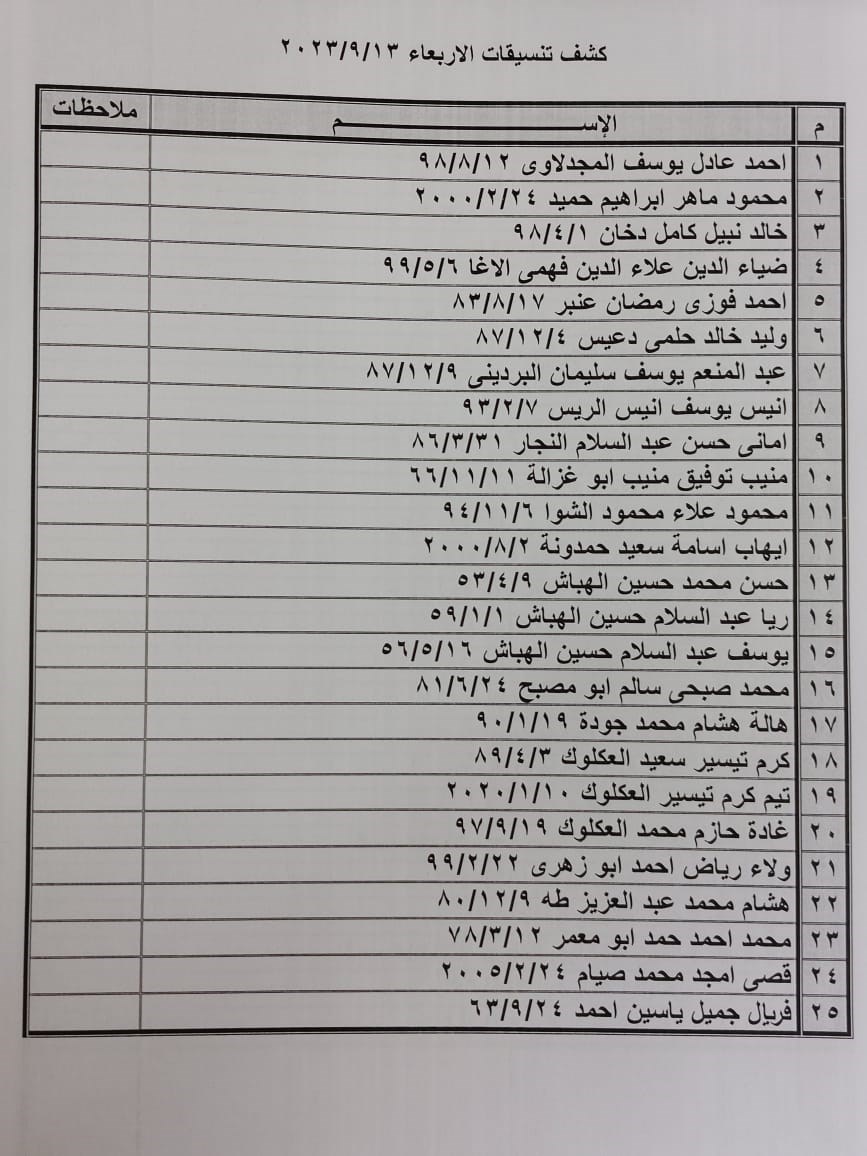 كشف تنسيقات الاربعاء ٢٠٢٣/٩/١٣
م الإســـــــــــــم ملاحظات
١ احمد عادل يوسف المجدلاوى ٩٨/٨/١٢
٢ محمود ماهر ابراهيم حميد ٢٠٠٠/٢/٢٤
٣ خالد نبيل كامل دخان ٩٨/٤/١
٤ ضياء الدين علاء الدين فهمى الاغا ٩٩/٥/٦
٥ احمد فوزى رمضان عنبر ٨٣/٨/١٧
٦ وليد خالد حلمى دعيس ٨٧/١٢/٤
٧ عبد المنعم يوسف سليمان البردينى ٨٧/١٢/٩
٨ انيس يوسف انيس الريس ٩٣/٢/٧
٩ امانى حسن عبد السلام النجار ٨٦/٣/٣١
١٠ منيب توفيق منيب ابو غزالة ٦٦/١١/١١
١١ محمود علاء محمود الشوا ٩٤/١١/٦
١٢ ايهاب اسامة سعيد حمدونة ٢٠٠٠/٨/٢
١٣ حسن محمد حسين الهباش ٥٣/٤/٩
١٤ ريا عبد السلام حسين الهباش ٥٩/١/١
١٥ يوسف عبد السلام حسين الهباش ٥٦/٥/١٦
١٦ محمد صبحى سالم ابو مصبح ٨١/٦/٢٤
١٧ هالة هشام محمد جودة ٩٠/١/١٩
١٨ كرم تيسير سعيد العكلوك ٨٩/٤/٣
١٩ تيم كرم تيسير العكلوك ٢٠٢٠/١/١٠
٢٠ غادة حازم محمد العكلوك ٩٧/٩/١٩
٢١ ولاء رياض احمد ابو زهرى ٩٩/٢/٢٢
٢٢ هشام محمد عبد العزيز طه ٨٠/١٢/٩
٢٣ محمد احمد حمد ابو معمر ٧٨/٣/١٢
٢٤ قصى امجد محمد صيام ٢٠٠٥/٢/٢٤
٢٥ فريال جميل ياسين احمد ٦٣/٩/٢٤